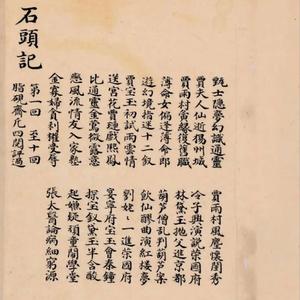 甄士隱夢幻識通靈 賈雨村風塵懷閨秀
賈夫人仙逝揚州城 冷子興演說榮國府
賈雨村夤緣復舊職 林黛玉拋父進京都
薄命女偏逢薄命郎 葫蘆僧乱判葫蘆案
遊幻境指迷十二釵 飲仙醪曲演紅樓夢
賈宝玉初試雨雲情 劉姥〻一進榮國府
送宮花賈璉戲熙鳳 宴寧府宝玉會秦鐘
比通靈金鶯微露意 探宝釵黛玉半含酸
戀風流情友入家塾 起嫌疑頑童鬧學堂
金寡婦貪利權受辱 張太醫論病細窮源
石頭記
第一回 至十回
脂硯齋凡四閱評過